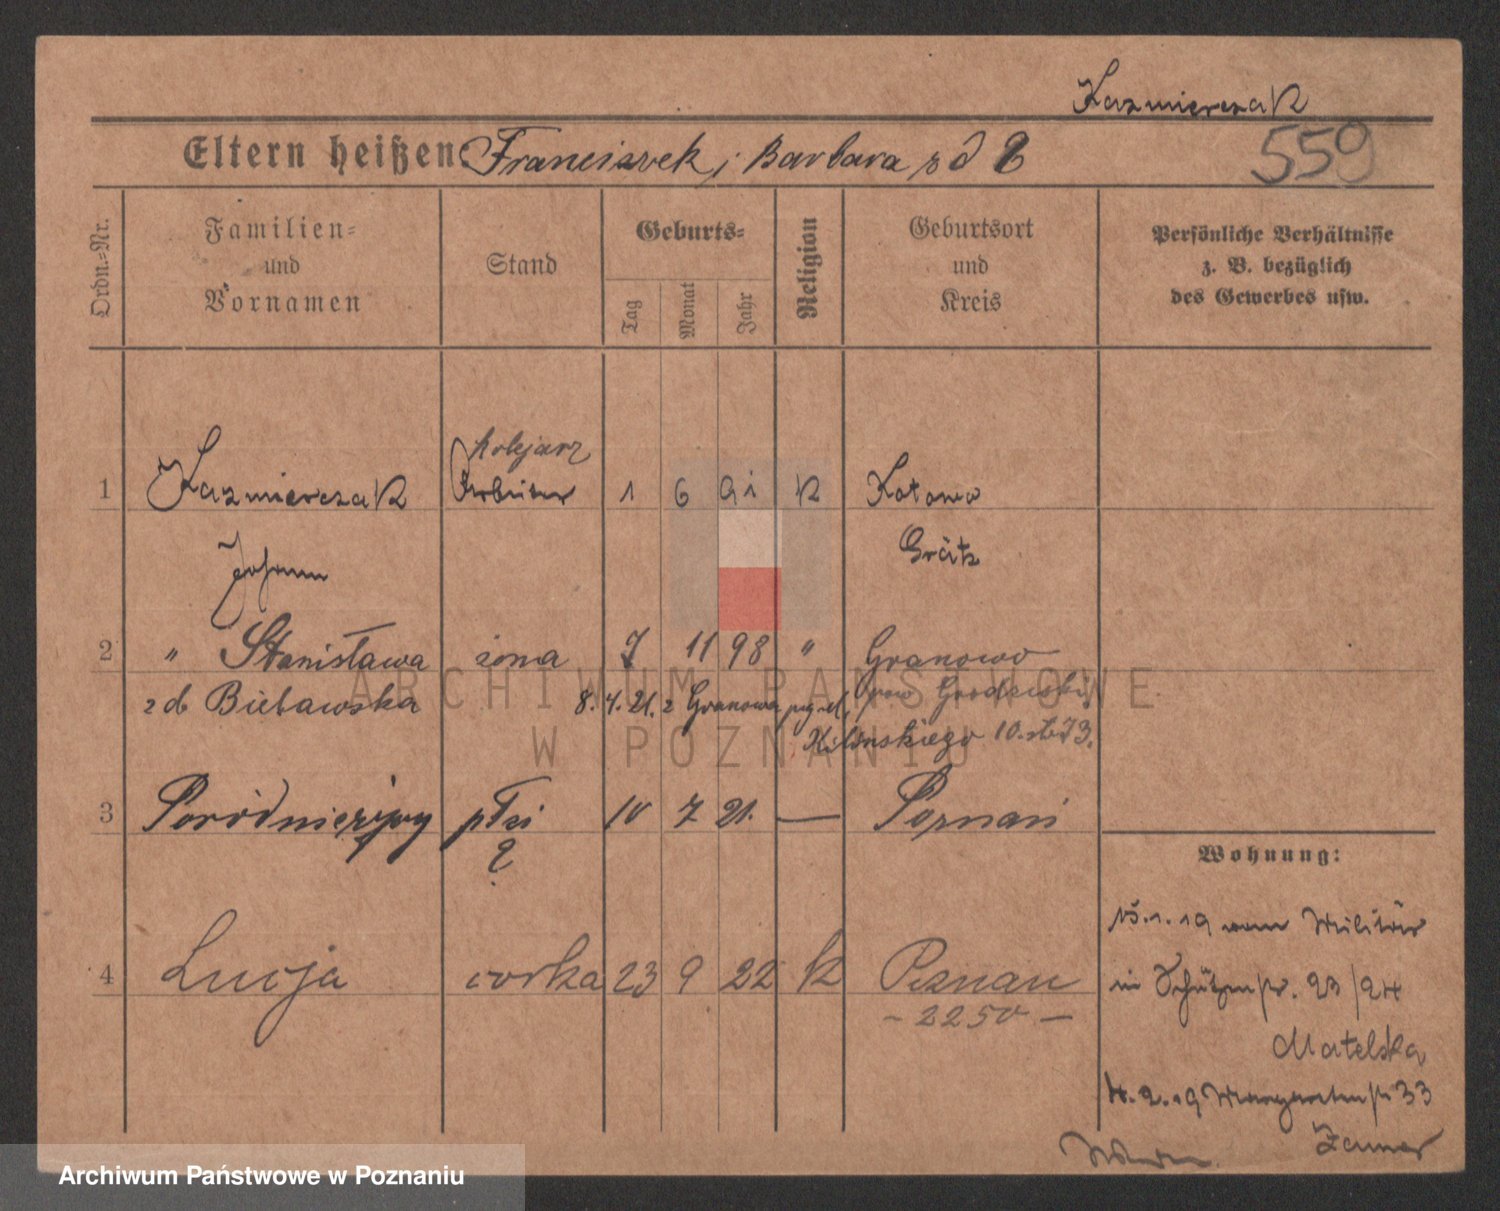 Kazmierczak
Eltern heißen: Franciszek i Barbara z d
559
Ordn.-Nr.
Familien-
und
Vornamen
Stand
Geburts-
Tag
Monat
Jahr
Religion
Geburtsort
und
Kreis
Persönliche Verhältnisse
z. B. bezüglich
des Gewerbes usw.
kolejarz
1 Kazmierczak Arbeiter 1 6 91 k Kotowo
Johann Grätz
2 " Stanisława żona 7 11 98 " Granowo
z d Bielawska 8. 4. 21. z Granowa
Kilińskiego 10.
3 10 7 21. — Poznań
Wohnung:
15.1.19 vom Militär
4 Lucja córka 23 9 22 k Poznan
in Schützenstr. 23/24
- 2250 -
Matelska
4.2.19 Margaretenstr 33
ARCHIWUM PAŃSTWOWE
W POZNANIU
Archiwum Państwowe w Poznaniu